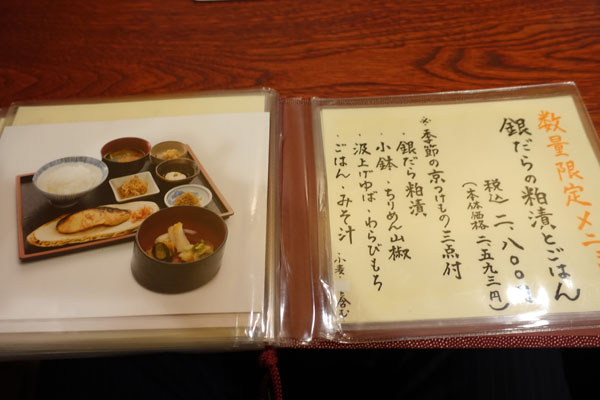 数量限定メニ
銀だらの粕漬とごはん
税込 二、八〇〇円
(本体価格 二、五九三円)
季節の京つけもの三点付
・銀だら粕漬
・小鉢・ちりめん山椒
・汲上げゆば・わらびもち
・ごはん・みそ汁
小麦・含む